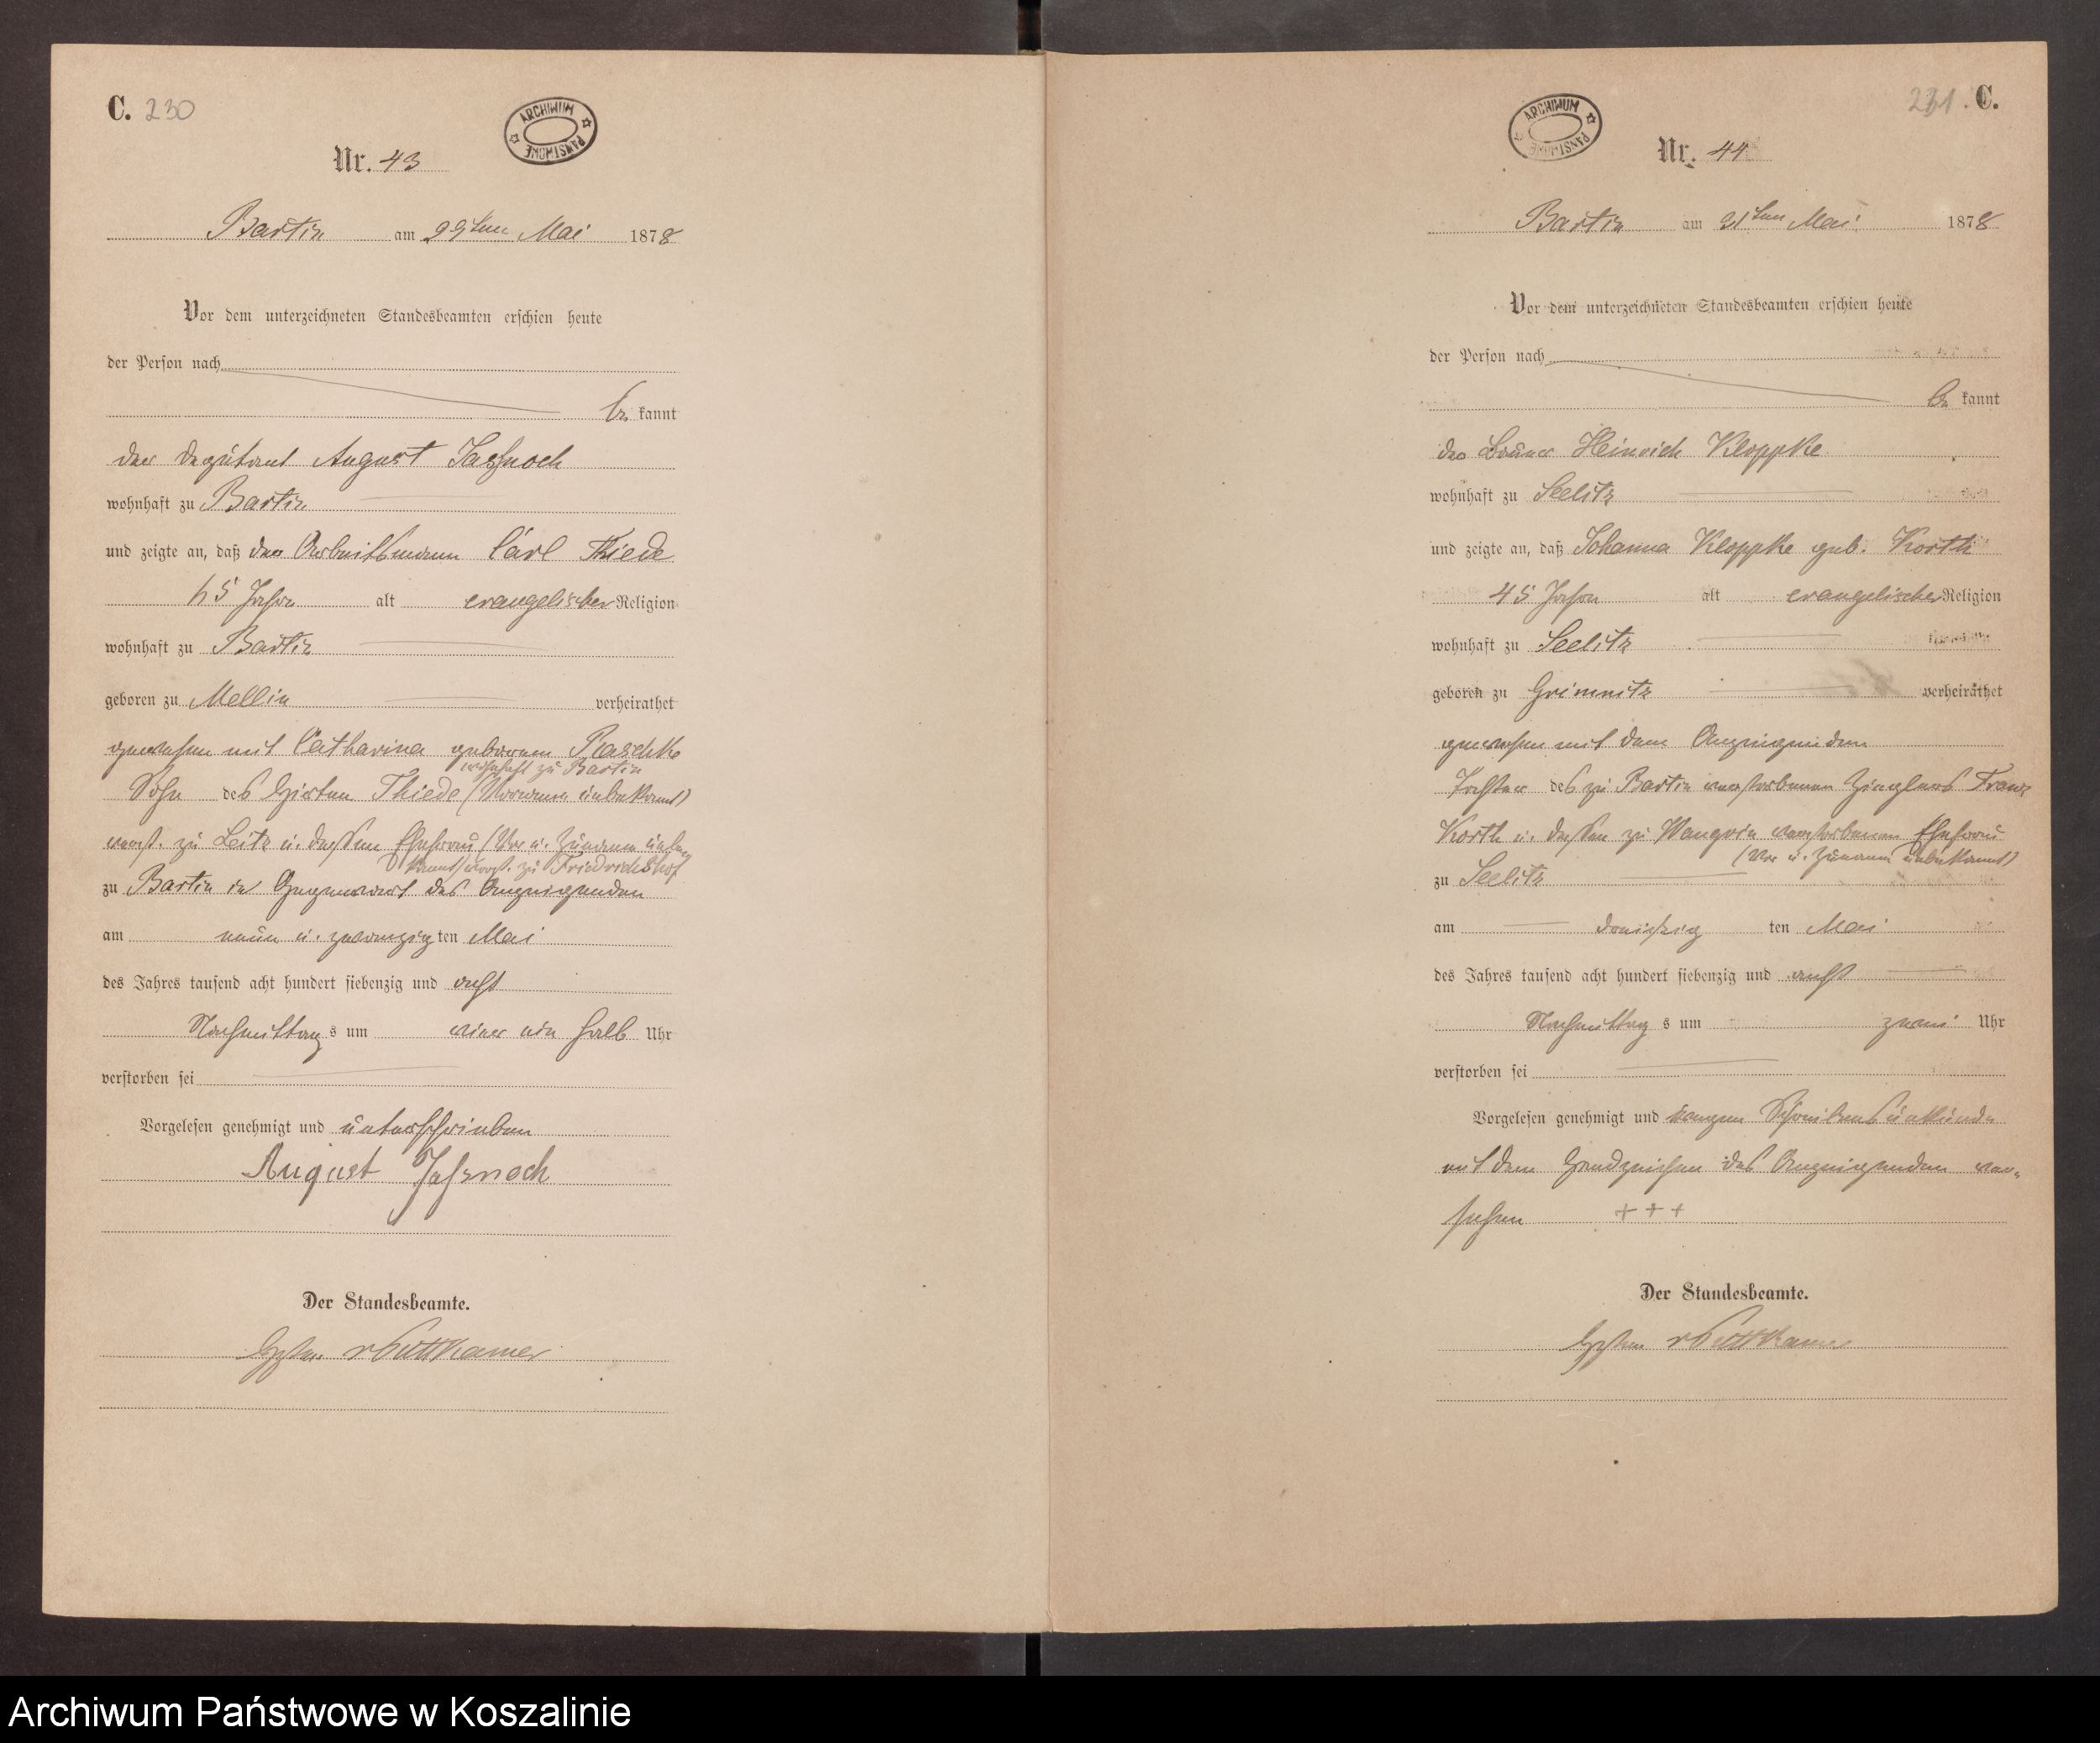 C. 230
ARCHIWUM PAŃSTWOWE
Nr. 43
Bartin am 29ten Mai 1878
Vor dem unterzeichneten Standesbeamten erschien heute
der Person nach
be kannt
der Deputant August Jassnoch
wohnhaft zu Bartin
und zeigte an, daß der Arbeitsmann Carl Thiede
65 Jahre alt evangelischer Religion
wohnhaft zu Bartin
geboren zu Mellin verheirathet
gewesen mit Catharina geborenen Raschke
wohnhaft zu Bartin
Sohn des Hirten Thiede (Vorname unbekannt)
verst. zu Beitz u. dessen Ehefrau (Vor u. Zuname unbe
kannt) verst. zu Friedrichshof
zu Bartin in Gegenwart des Anzeigenden
am neun u. zwanzig ten Mai
des Jahres tausend acht hundert siebenzig und acht
Nachmittag s um ein halb Uhr
verstorben sei
Vorgelesen genehmigt und unterschrieben
August Jassnoch
Der Standesbeamte.
v Puttkamer
231. C.
ARCHIWUM PAŃSTWOWE
Nr. 44
Bartin am 31ten Mai 1878
Vor dem unterzeichneten Standesbeamten erschien heute
der Person nach
be kannt
der Bauer Heinrich Kloppke
wohnhaft zu Seelitz
und zeigte an, daß Johanna Kloppke geb. Korth
45 Jahre alt evangelischer Religion
wohnhaft zu Seelitz
geboren zu Grimnitz verheirathet
gewesen mit dem Anzeigenden
Tochter des zu Bartin verstorbenen Zieglers Franz
Korth u. dessen zu Wangrin verstorbenen Ehefrau
(Vor u. Zuname unbekannt)
zu Seelitz
am dreißig ten Mai
des Jahres tausend acht hundert siebenzig und acht
Nachmittag s um zwei Uhr
verstorben sei
Vorgelesen genehmigt und wegen Schreibensunkunde
mit dem Handzeichen des Anzeigenden ver-
sehen + + +
Der Standesbeamte.
v Puttkamer
Archiwum Państwowe w Koszalinie